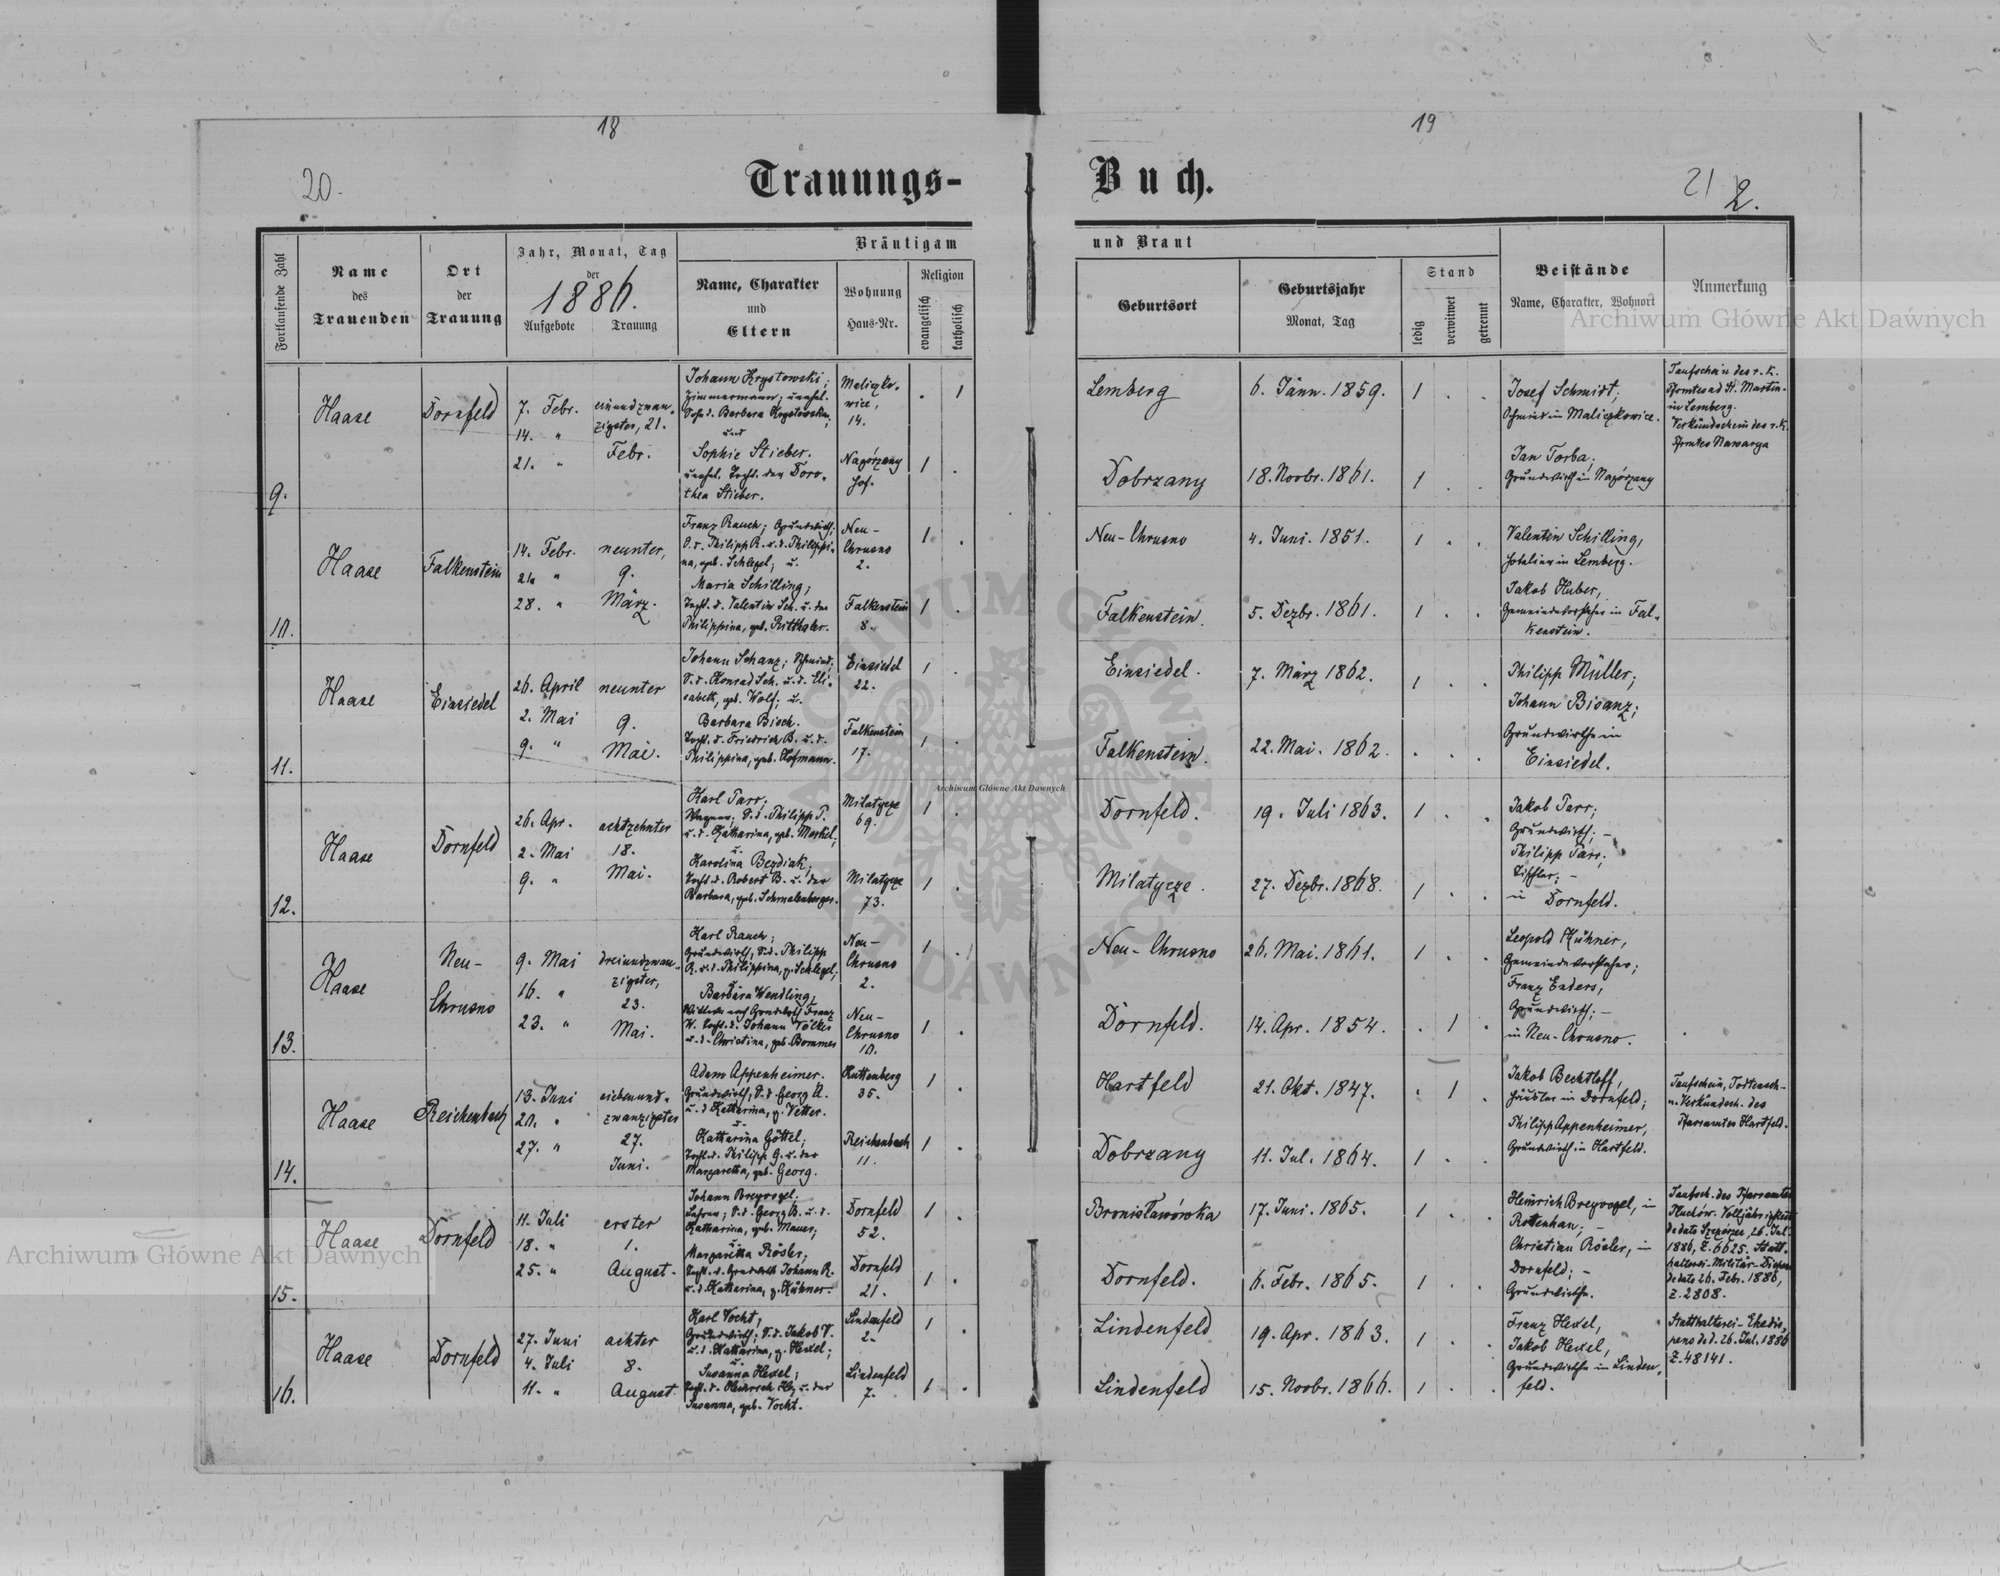 18
19
20.
21 2.
Trauungs-
Buch.
Fortlaufende Zahl
Name
des
Trauenden
Ort
der
Trauung
Jahr, Monat, Tag
der
1886.
Aufgebote
Trauung
Bräutigam
Name, Charakter
und
Eltern
Wohnung
Haus-Nr.
Religion
evangelisch
katholisch
und Braut
Geburtsort
Geburtsjahr
Monat, Tag
Stand
ledig
verwitwet
getrennt
Beistände
Name, Charakter, Wohnort
Anmerkung
9.
Haase
Dornfeld
7. Febr.
14. "
21. "
einundzwan-
zigster, 21.
Febr.
Johann Krystowski;
Zimmermann; unehel.
Sohn d. Barbara Krystowska;
und
Sophie Stieber.
unehel. Tocht. der Doro-
thea Stieber.
Maliczko-
wice,
14.
Nagórzany
Hof.
. 1
1 .
Lemberg
Dobrzany
6. Jänn. 1859.
18. Novbr. 1861.
1 . .
1 . .
Josef Schmidt;
Schmied in Maliczkowice.
Jan Torba;
Grundwirth in Nagórzany
Taufschein des r. k.
Pfarramtes ad St. Martin
in Lemberg.
Verkündschein des r. k.
Pfarramtes Nawarya
10.
Haase
Falkenstein
14. Febr.
21. "
28. "
neunter,
9.
März.
Franz Rauch; Grundwirth;
S. d. Philipp R. u. d. Philippi-
na, geb. Schlegel; u.
Maria Schilling;
Tocht. d. Valentin Sch. u. der
Philippina, geb. Ritthaler.
Neu-
Chrusno
2.
Falkenstein
8.
1 .
1 .
Neu-Chrusno
Falkenstein.
4. Juni. 1851.
5. Dezbr. 1861.
1 . .
1 . .
Valentin Schilling,
Hotelier in Lemberg.
Jakob Huber,
Gemeindevorsteher in Fal-
kenstein.
11.
Haase
Einsiedel
26. April
2. Mai
9. "
neunter
9.
Mai.
Johann Schanz; Schmied;
S. d. Konrad Sch. u. d. Eli-
sabeth, geb. Wolf; u.
Barbara Bisch.
Tocht. d. Friedrich B. u. d.
Philippina, geb. Hofmann.
Einsiedel
22.
Falkenstein
17.
1 .
1 .
Einsiedel.
Falkenstein.
7. März 1862.
22. Mai. 1862.
1 . .
. . .
Philipp Müller;
Johann Bisanz;
Grundwirthe in
Einsiedel.
12.
Haase
Dornfeld
26. Apr.
2. Mai
9. "
achtzehnter
18.
Mai.
Karl Parr;
Wagner; S. d. Philipp P.
u. d. Katharina, geb. Merkel;
u.
Karolina Bezdiak;
Tocht. d. Robert B. u. der
Barbara, geb. Schmalenberger.
Milatycze
69.
Milatycze
73.
1 .
1 .
Dornfeld.
Milatycze.
19. Juli 1863.
27. Dezbr. 1868.
1 . .
1 . .
Jakob Parr;
Grundwirth; -
Philipp Parr;
Tischler; -
in Dornfeld.
13.
Haase
Neu-
Chrusno
9. Mai
16. "
23. "
dreiundzwan-
zigster,
23.
Mai.
Karl Rauch;
Grundwirth, S. d. Philipp
R. u. d. Philippina, g. Schlegel;
u.
Barbara Wendling,
Witwe nach Grundwirth Franz
W. Tocht. d. Johann Völker
u. d. Christina, geb. Bommer
Neu-
Chrusno
2.
Neu-
Chrusno
10.
1 .
1 .
Neu-Chrusno
Dornfeld.
26. Mai. 1861.
14. Apr. 1854.
1 . .
. 1 .
Leopold Kühner,
Gemeindevorsteher;
Franz Enders,
Grundwirth; -
in Neu-Chrusno.
14.
Haase
Reichenbach
13. Juni
20. "
27. "
siebenund-
zwanzigster
27.
Juni.
Adam Appenheimer.
Grundwirth, S. d. Georg A.
u. d. Katharina, g. Vetter.
u.
Katharina Göttel;
Tocht. d. Philipp G. u. der
Margaretha, geb. Georg.
Kuttenberg
35.
Reichenbach
11.
1 .
1 .
Hartfeld
Dobrzany
21. Okt. 1847.
11. Jul. 1864.
. 1 .
1 . .
Jakob Bechtloff,
Häusler in Dornfeld;
Philipp Appenheimer,
Grundwirth in Hartfeld.
Taufschein, Todtensch-
u. Verkündsch. des
Pfarramtes Hartfeld.
15.
Haase
Dornfeld
11. Juli
18. "
25. "
erster
1.
August.
Johann Breyvogel;
Lehrer; S. d. Georg B. u. d.
Katharina, geb. Mauer;
u.
Margaretha Rösler;
Tocht. d. Grundwirth Johann R.
u. d. Katharina, g. Kühner.
Dornfeld
52.
Dornfeld
21.
1 .
1 .
Bronisławówka
Dornfeld.
17. Juni. 1865.
6. Febr. 1865.
1 . .
1 . .
Heinrich Breyvogel, in
Rottenhan; -
Christian Rösler, in
Dornfeld; -
Grundwirthe.
Taufsch. des Pfarramtes
Volljährigkeit
de dato Szczerzec, 26. Jul.
1886, Z. 6625. Statt-
halterei-Militär-Dispens
de dato 26. Febr. 1886,
Z. 2808.
16.
Haase
Dornfeld
27. Juni
4. Juli
11. "
achter
8.
August.
Karl Vocht,
Grundwirth; S. d. Jakob V.
u. d. Katharina, g. Hexel;
u.
Susanna Hexel;
Tocht. d. Heinrich H. u. der
Susanna, geb. Vocht.
Lindenfeld
2.
Lindenfeld
7.
1 .
1 .
Lindenfeld
Lindenfeld
19. Apr. 1863.
15. Novbr. 1866.
1 . .
1 . .
Franz Hexel,
Jakob Hexel,
Grundwirthe in Linden-
feld.
Statthalterei-Ehedis-
pens d. d. 26. Jul. 1886
Z. 48141.
Archiwum Główne Akt Dawnych
Archiwum Główne Akt Dawnych
Archiwum Główne Akt Dawnych
ARCHIWUM GŁÓWNE AKT DAWNYCH